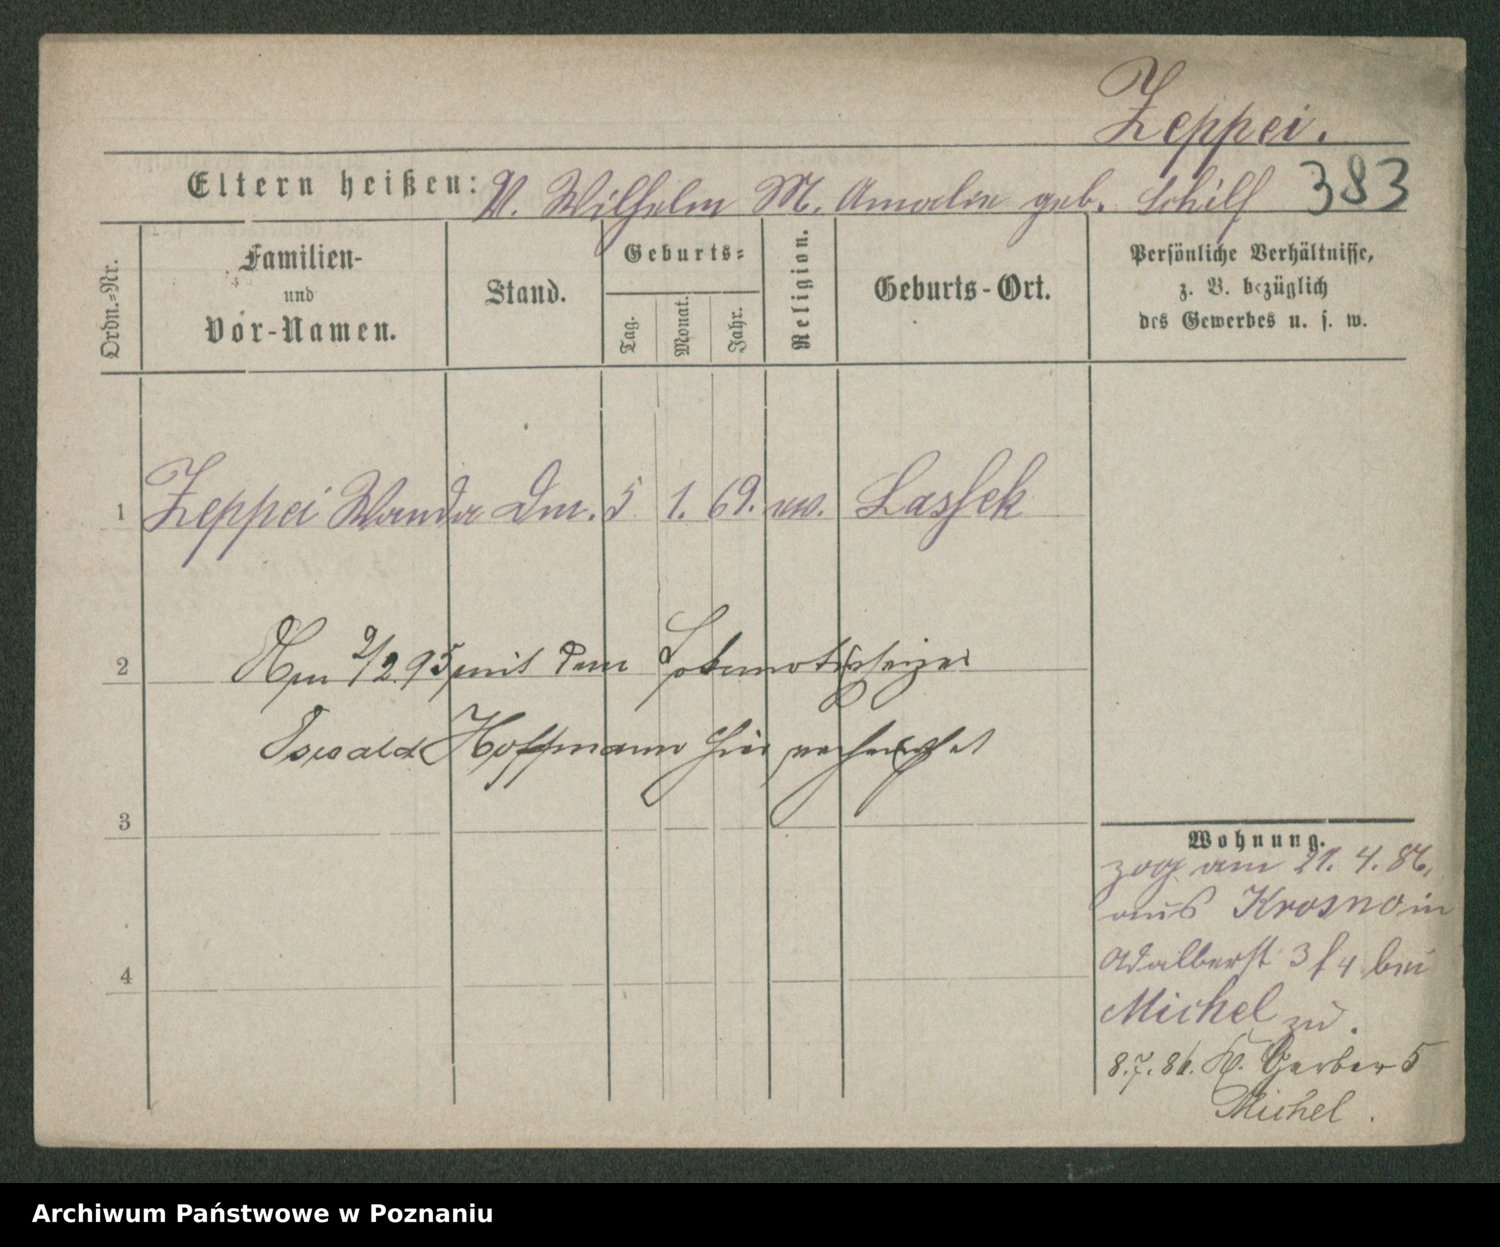 Zeppei.
Eltern heißen: V. Wilhelm M. Amalie geb. Schilf 383
Ordn.=Nr.
Familien-
und
Vor-Namen.
Stand.
Geburts=
Tag.
Monat.
Jahr.
Religion.
Geburts-Ort.
Persönliche Verhältnisse,
z. B. bezüglich
des Gewerbes u. s. w.
1 Zeppei Wanda Dm. 5 1. 69. ev. Lassek
2 Am 9/2.95 mit dem Lokomotivheizer
Oswald Hoffmann hier verheirathet
3
4
Wohnung.
zog am 21. 4. 86.
aus Krosno in
Adalbertst 3 f 4 bei
Michel zu.
8.7.86. Kl. Gerber 5
Michel.
Archiwum Państwowe w Poznaniu